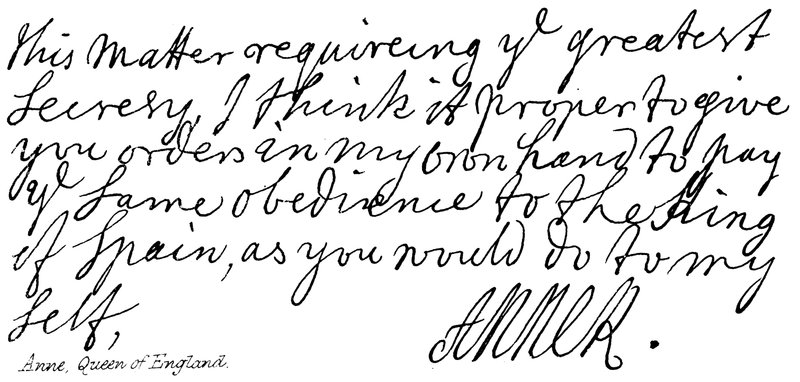 this matter requireing ye greatest
Secresy, I think it proper to give
you orders in my own hand to pay
ye same obedience to the King
of Spain, as you would do to my
self,
ANNE R.
Anne, Queen of England.